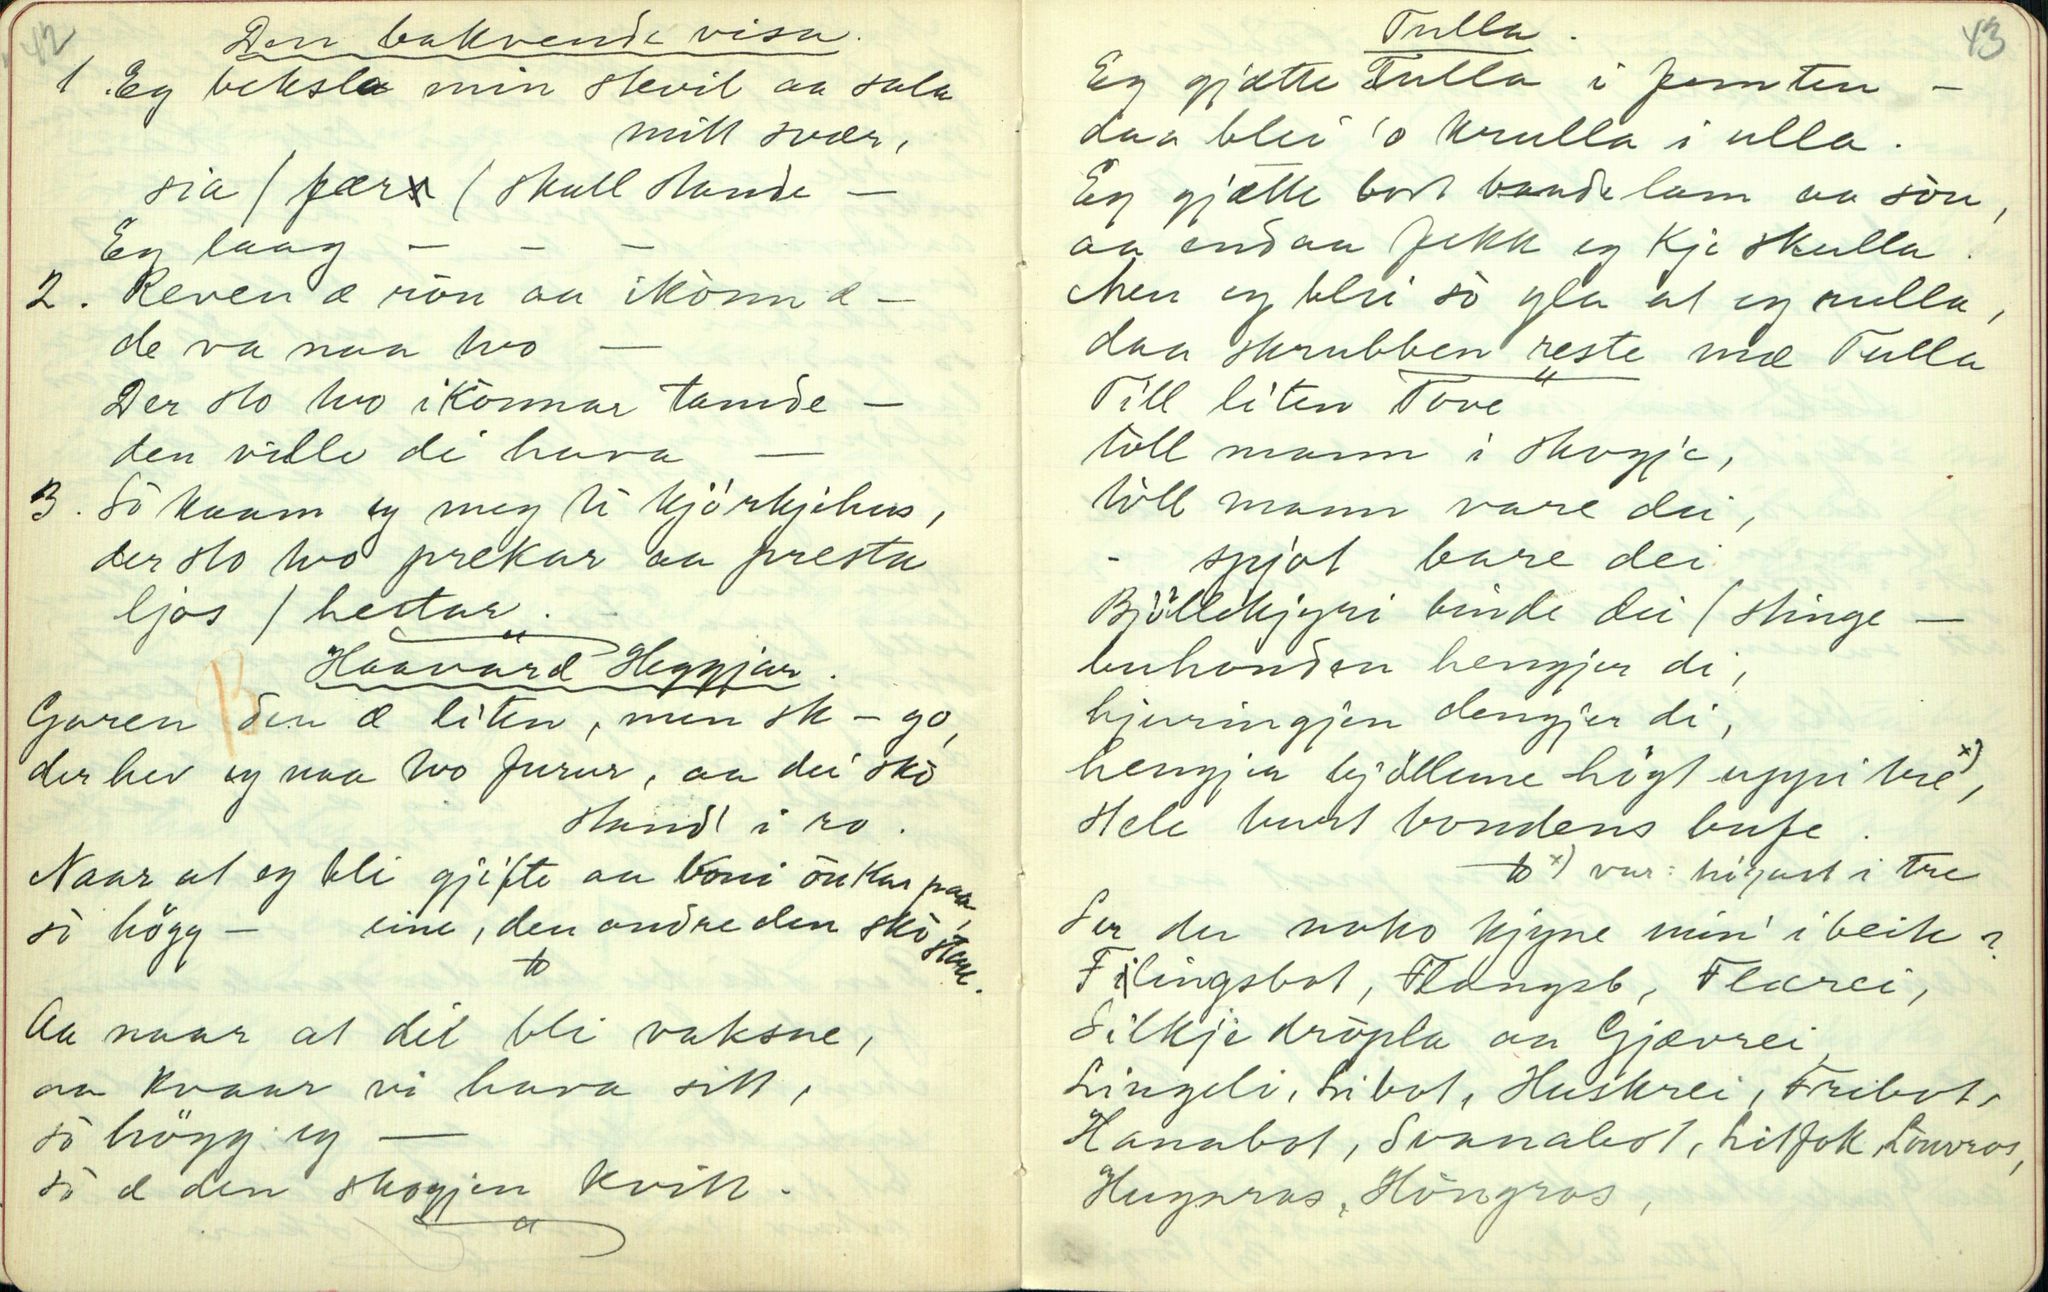 42
Den bakvende visa.
1. Eg beksla min stevil aa sala
mitt svær,
sia / fær / skull stande —
Eg laag — — —
2. Reven æ rön aa ikönn æ —
de va naa tvo —
Der sto tvo ikönnar tamde —
den ville di hava —
3. Sò kaam eg meg ti kjörkjehus,
der sto tvo prekar aa presta
ljos / hestar.
Haavard Heggjar.
Garen den æ liten, men sk — go,
der hev eg naa tvo furur, aa dei skò
stand' i ro.
Naar at eg bli gjifte aa boni önkar paa,
sò högg — eine, den andre den skò staae.
Aa naar at dei bli vaksne,
aa kvaar vi hava sitt,
sò högg eg —
sò æ den skogjen kvitt.
43
Tulla.
Eg gjætte Tulla i femten —
daa blei 'o krulla i ulla.
Eg gjætte bort baade lam aa söu,
aa endaa fekk eg kje skulla.
Men eg blei sò gla at eg rulla,
daa skrubben reste mæ Tulla
Till liten Tove
töll mann i skogje,
töll mann vare dei,
- spjot bare dei
Bjöllekjyri binde dei / stinge —
buhonden hengjer di,
hjuringjen dengjer di,
hengjer bjöllune högt uppi tre x),
stele burt bondens bufe.
x) var: högast i tre
Ser du noko kjyne min' i beite?
Filingsbot, Flangsb, Flærei,
Silkjedröpla aa Gjævrei,
Lingeli, Libot, Huskrei, Fribot,
Hanabot, Svanabot, Litfok, Louvros,
Hugaros, Höngros,